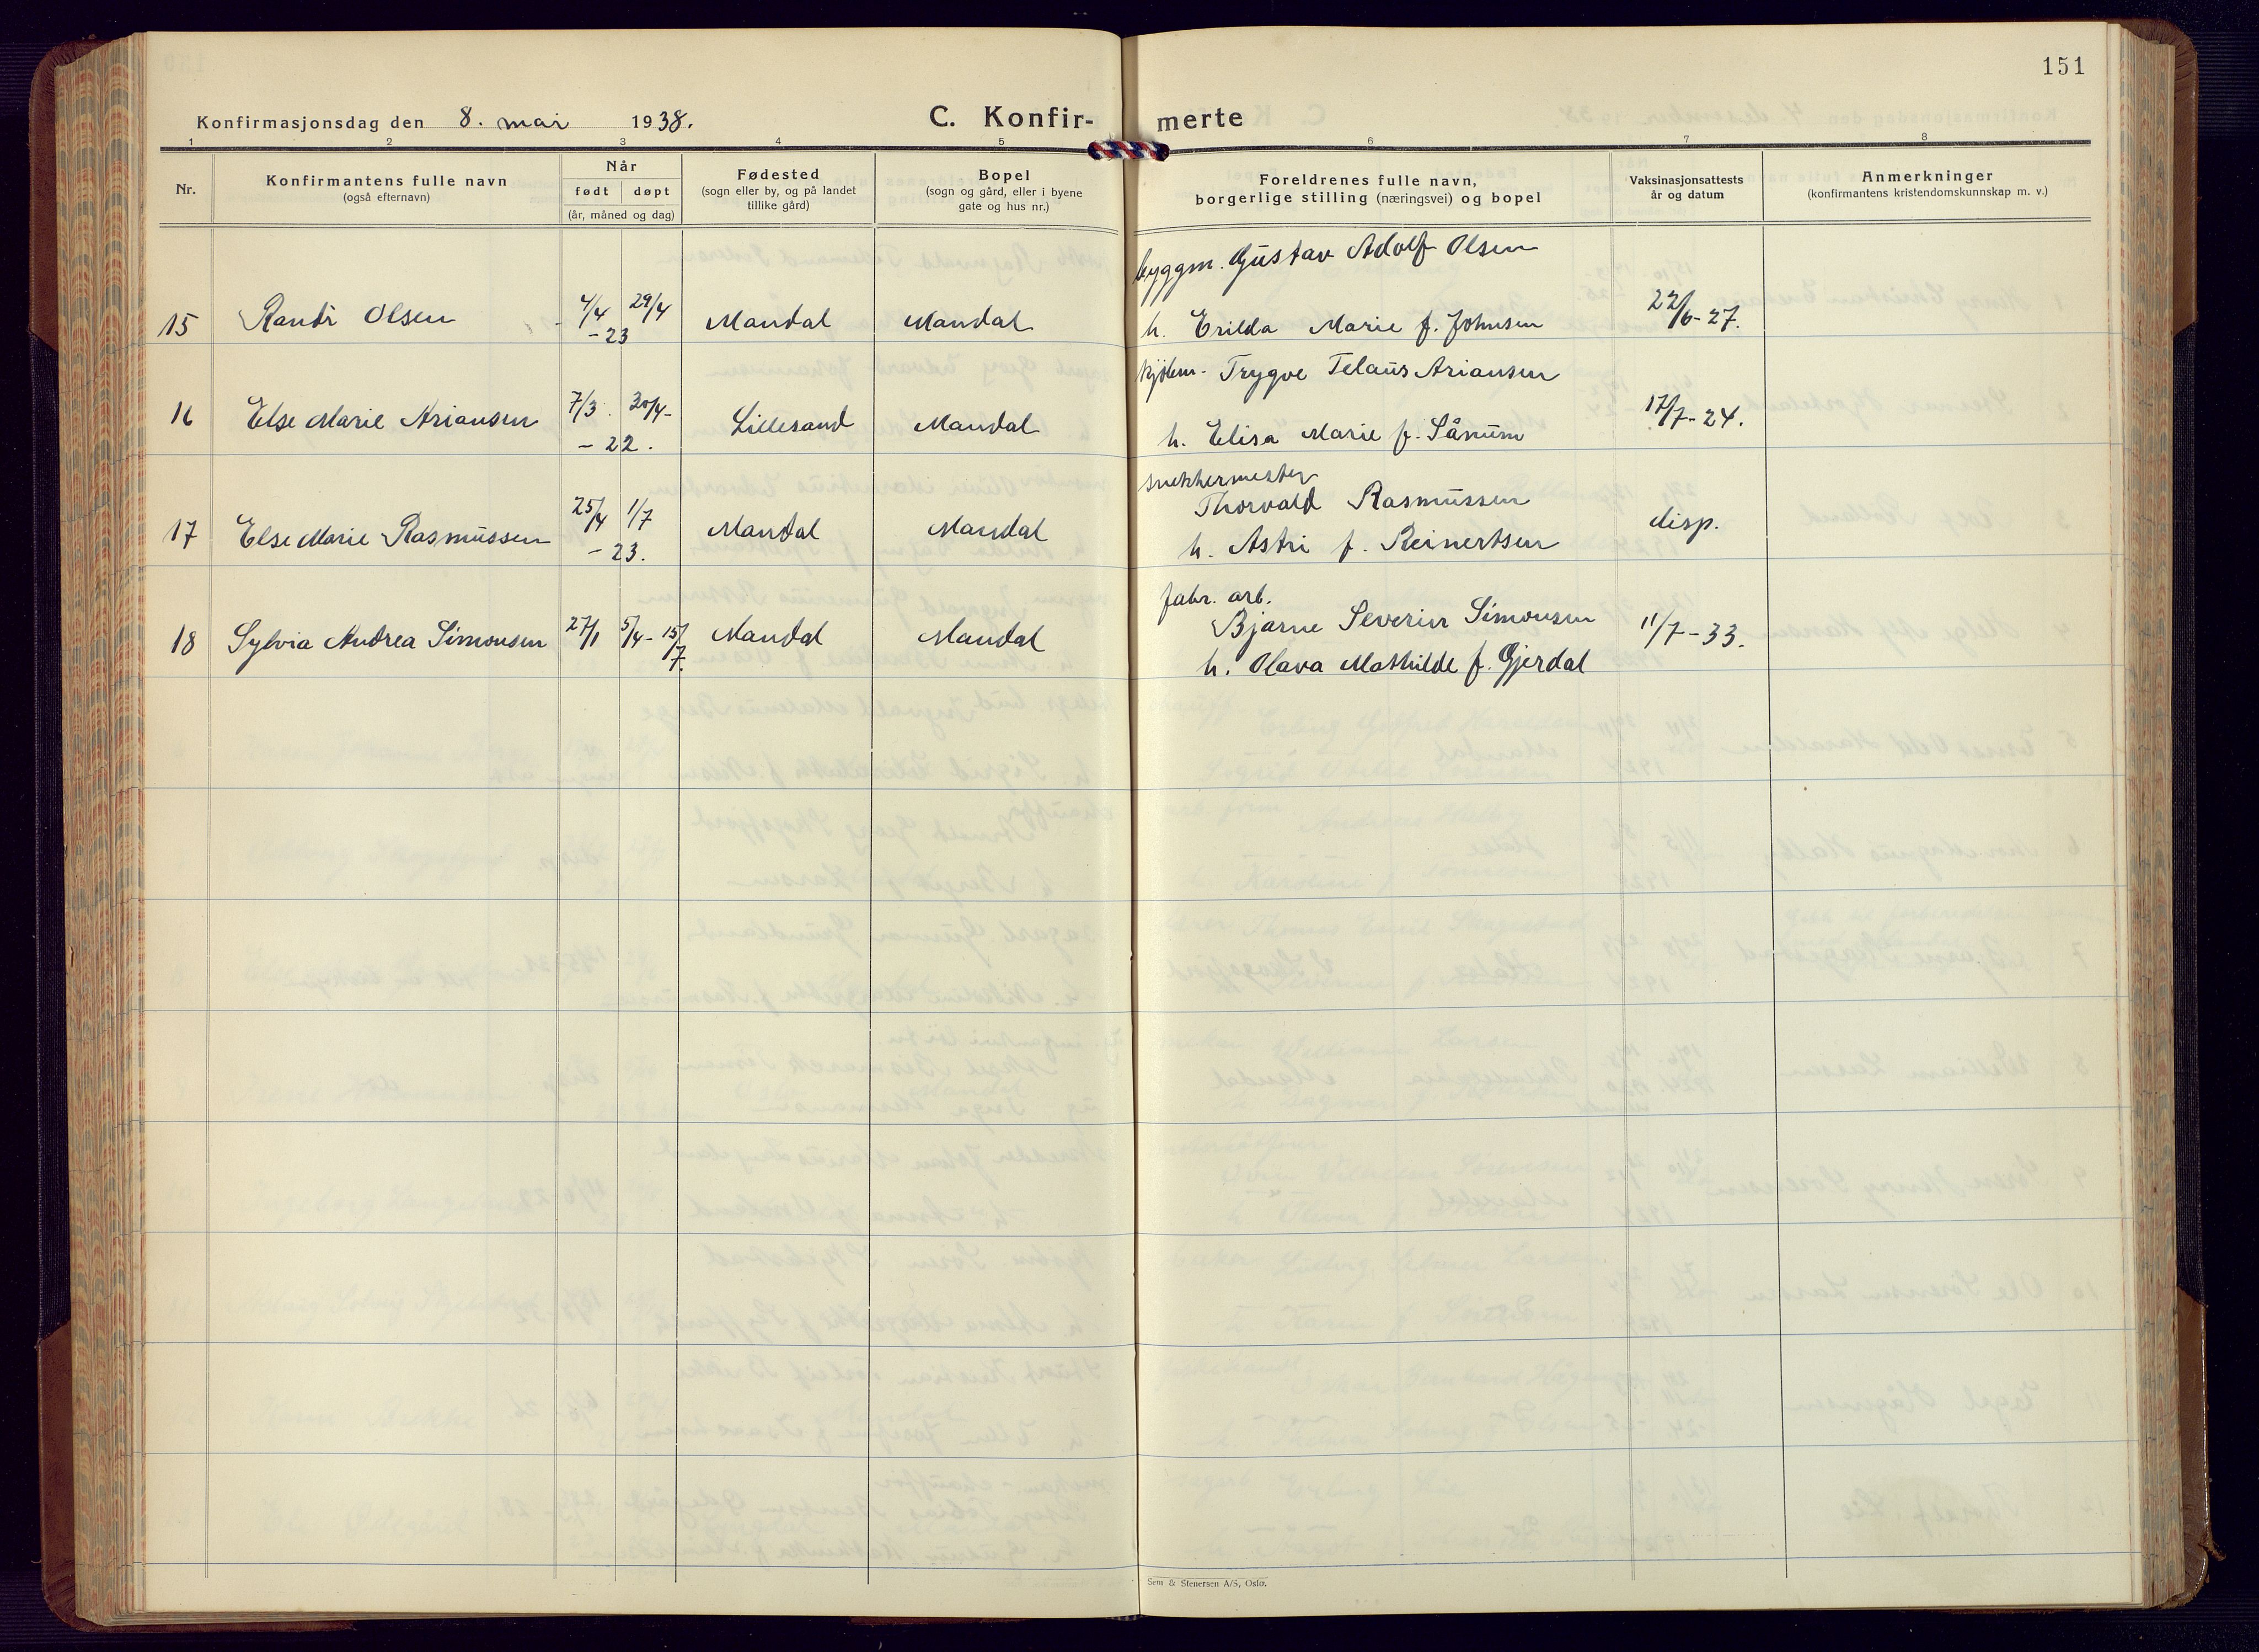 151
Konfirmasjonsdag den 8. mai 1938.
C. Konfir- merte
1 2 3 4 5 6 7 8
Nr.
Konfirmantens fulle navn
(også efternavn)
Når
født døpt
(år, måned og dag)
Fødested
(sogn eller by, og på landet
tillike gård)
Bopel
(sogn og gård, eller i byene
gate og hus nr.)
Foreldrenes fulle navn,
borgerlige stilling (næringsvei) og bopel
Vaksinasjonsattests
år og datum
Anmerkninger
(konfirmantens kristendomskunnskap m. v.)
byggm. Gustav Adolf Olsen
15 Randi Olsen 4/4 29/4 Mandal Mandal h. Erilda Marie f. Johnsen 22/6-27.
-23
Trygve Telaus Ariansen
16 Else Marie Ariansen 7/3. 30/4- Lillesand Mandal h. Elisa Marie f. Sånum 17/7-24.
-22.
snekkermester
Thorvald Rasmussen
17 Else Marie Rasmussen 25/4 1/7 Mandal Mandal h. Astri f. Reinertsen disp.
-23.
fabr. arb.
Bjarne Severin Simonsen
18 Sylvia Andrea Simonsen 27/1 5/4- 15/7. Mandal Mandal 11/7-33.
h. Olava Mathilde f. Gjerdal
Sem & Stenersen A/S, Oslo.